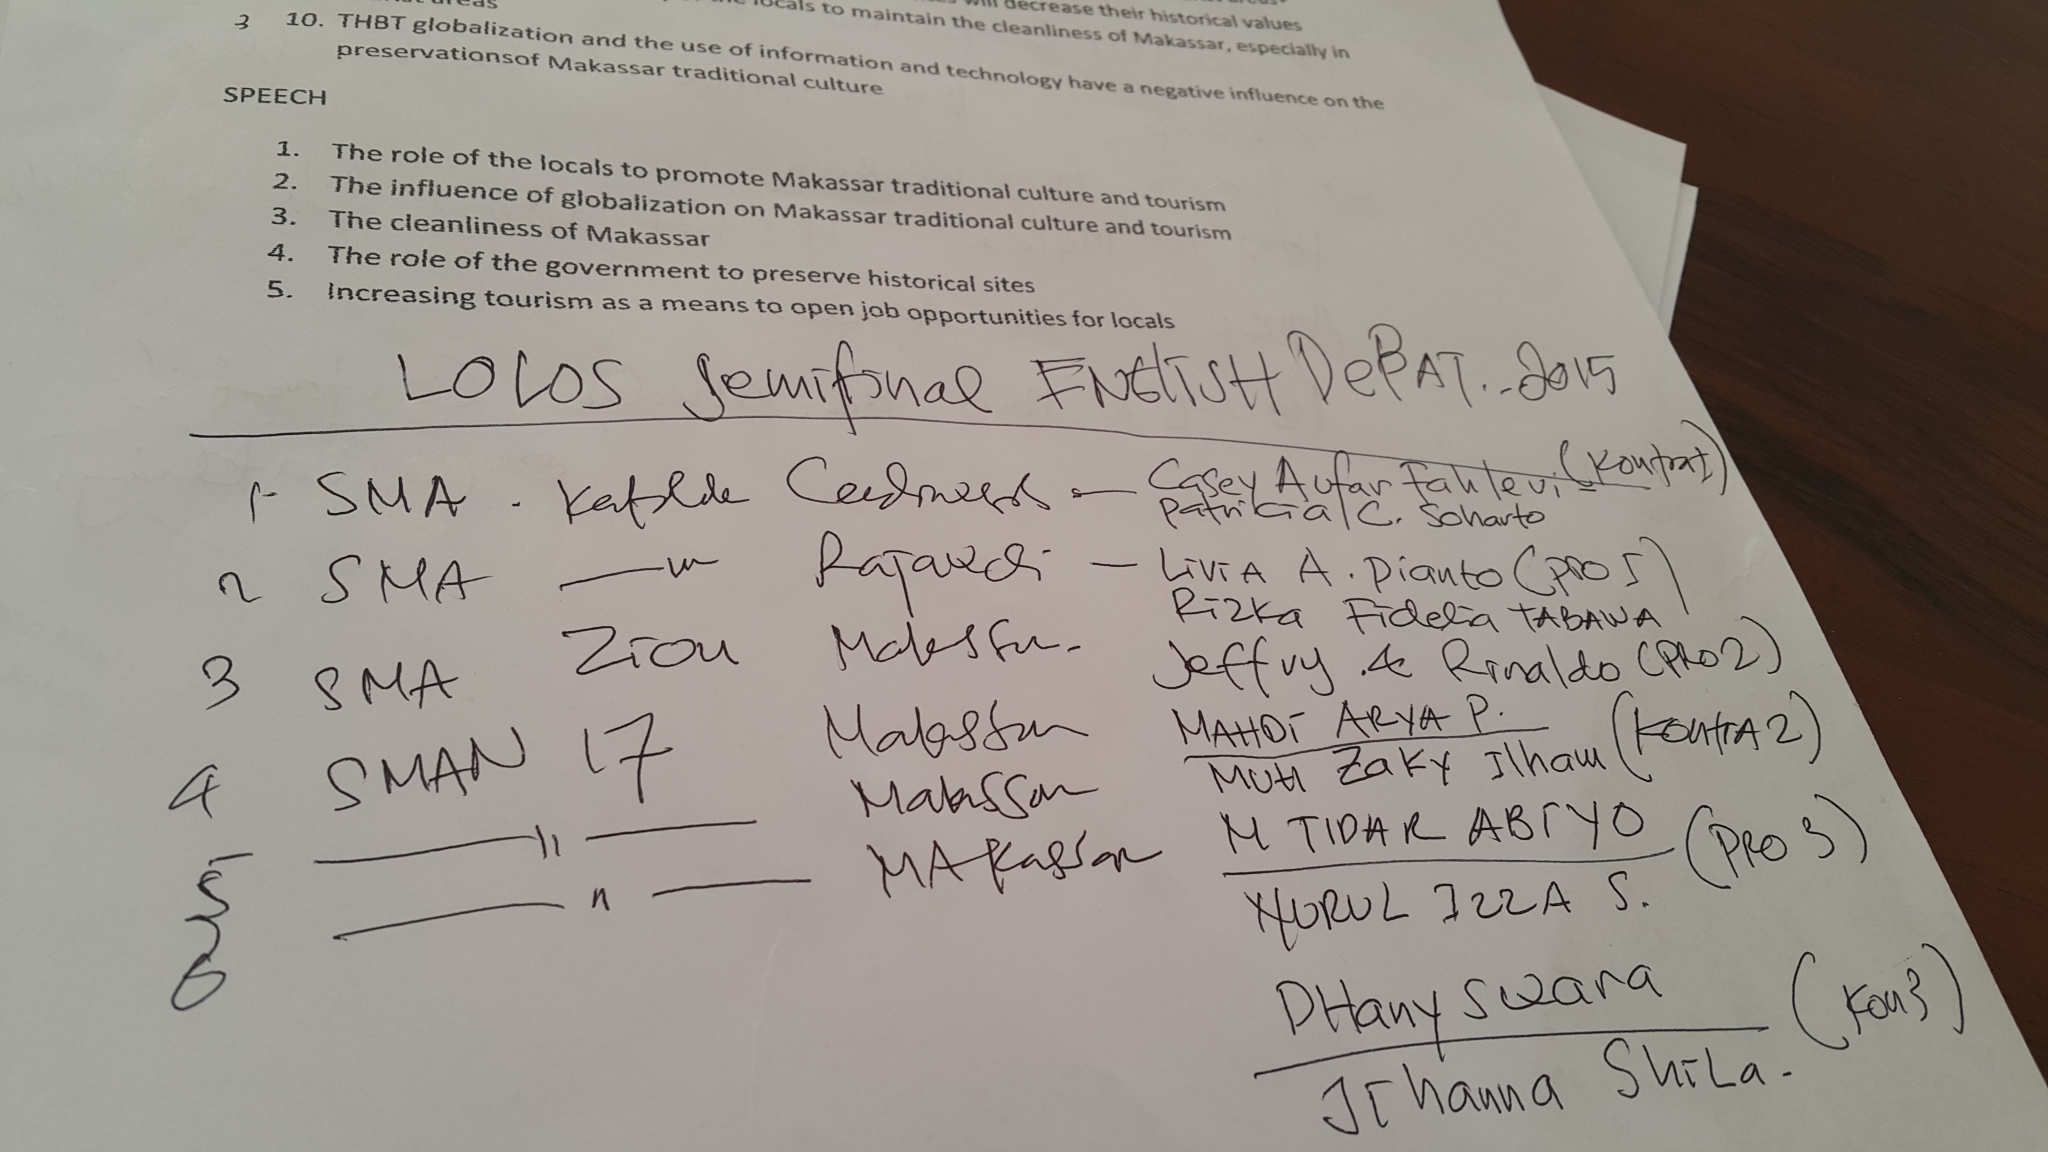 areas
will decrease their historical values
locals to maintain the cleanliness of Makassar, especially in
3 10. THBT globalization and the use of information and technology have a negative influence on the
preservationsof Makassar traditional culture
SPEECH
1. The role of the locals to promote Makassar traditional culture and tourism
2. The influence of globalization on Makassar traditional culture and tourism
3. The cleanliness of Makassar
4. The role of the government to preserve historical sites
5. Increasing tourism as a means to open job opportunities for locals
LOLOS Semifinal ENGLISH DEBAT..2015
1- SMA . - Casey Aufar Fahlevi (Kontra1)
Patricia C. Soharto
2 SMA — " Rajawali - LIVIA A. Dianto (PRO 1)
Rizka Fidelia TABAWA
3 SMA Zion Makassar - Jeffry & Rinaldo (PRO 2)
4 SMAN 17 Makassar MAHDI ARYA P. (KONTRA 2)
MUH ZAKY Ilham
5 — 11 — Makassar M TIDAR ABIYO (PRO 3)
NURUL IZZA S.
6 — " — MAkassar DHany Swara (Kon3)
JIhanna ShiLa.